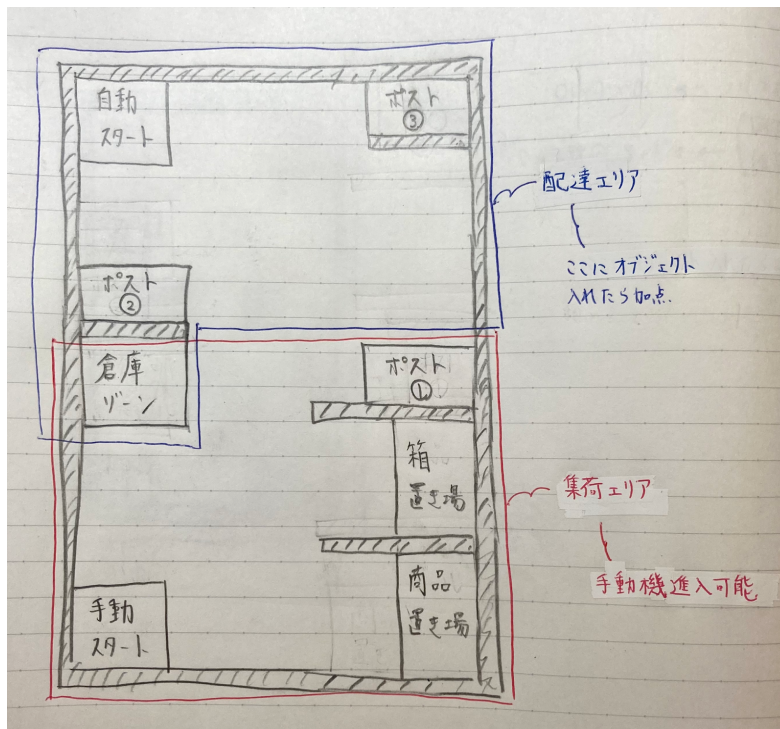 自動
スタート
ポスト
③
配達エリア
ここにオブジェクト
入れたら加点.
ポスト
②
倉庫
ゾーン
ポスト
①
箱
置き場
集荷エリア
手動機進入可能
商品
置き場
手動
スタート